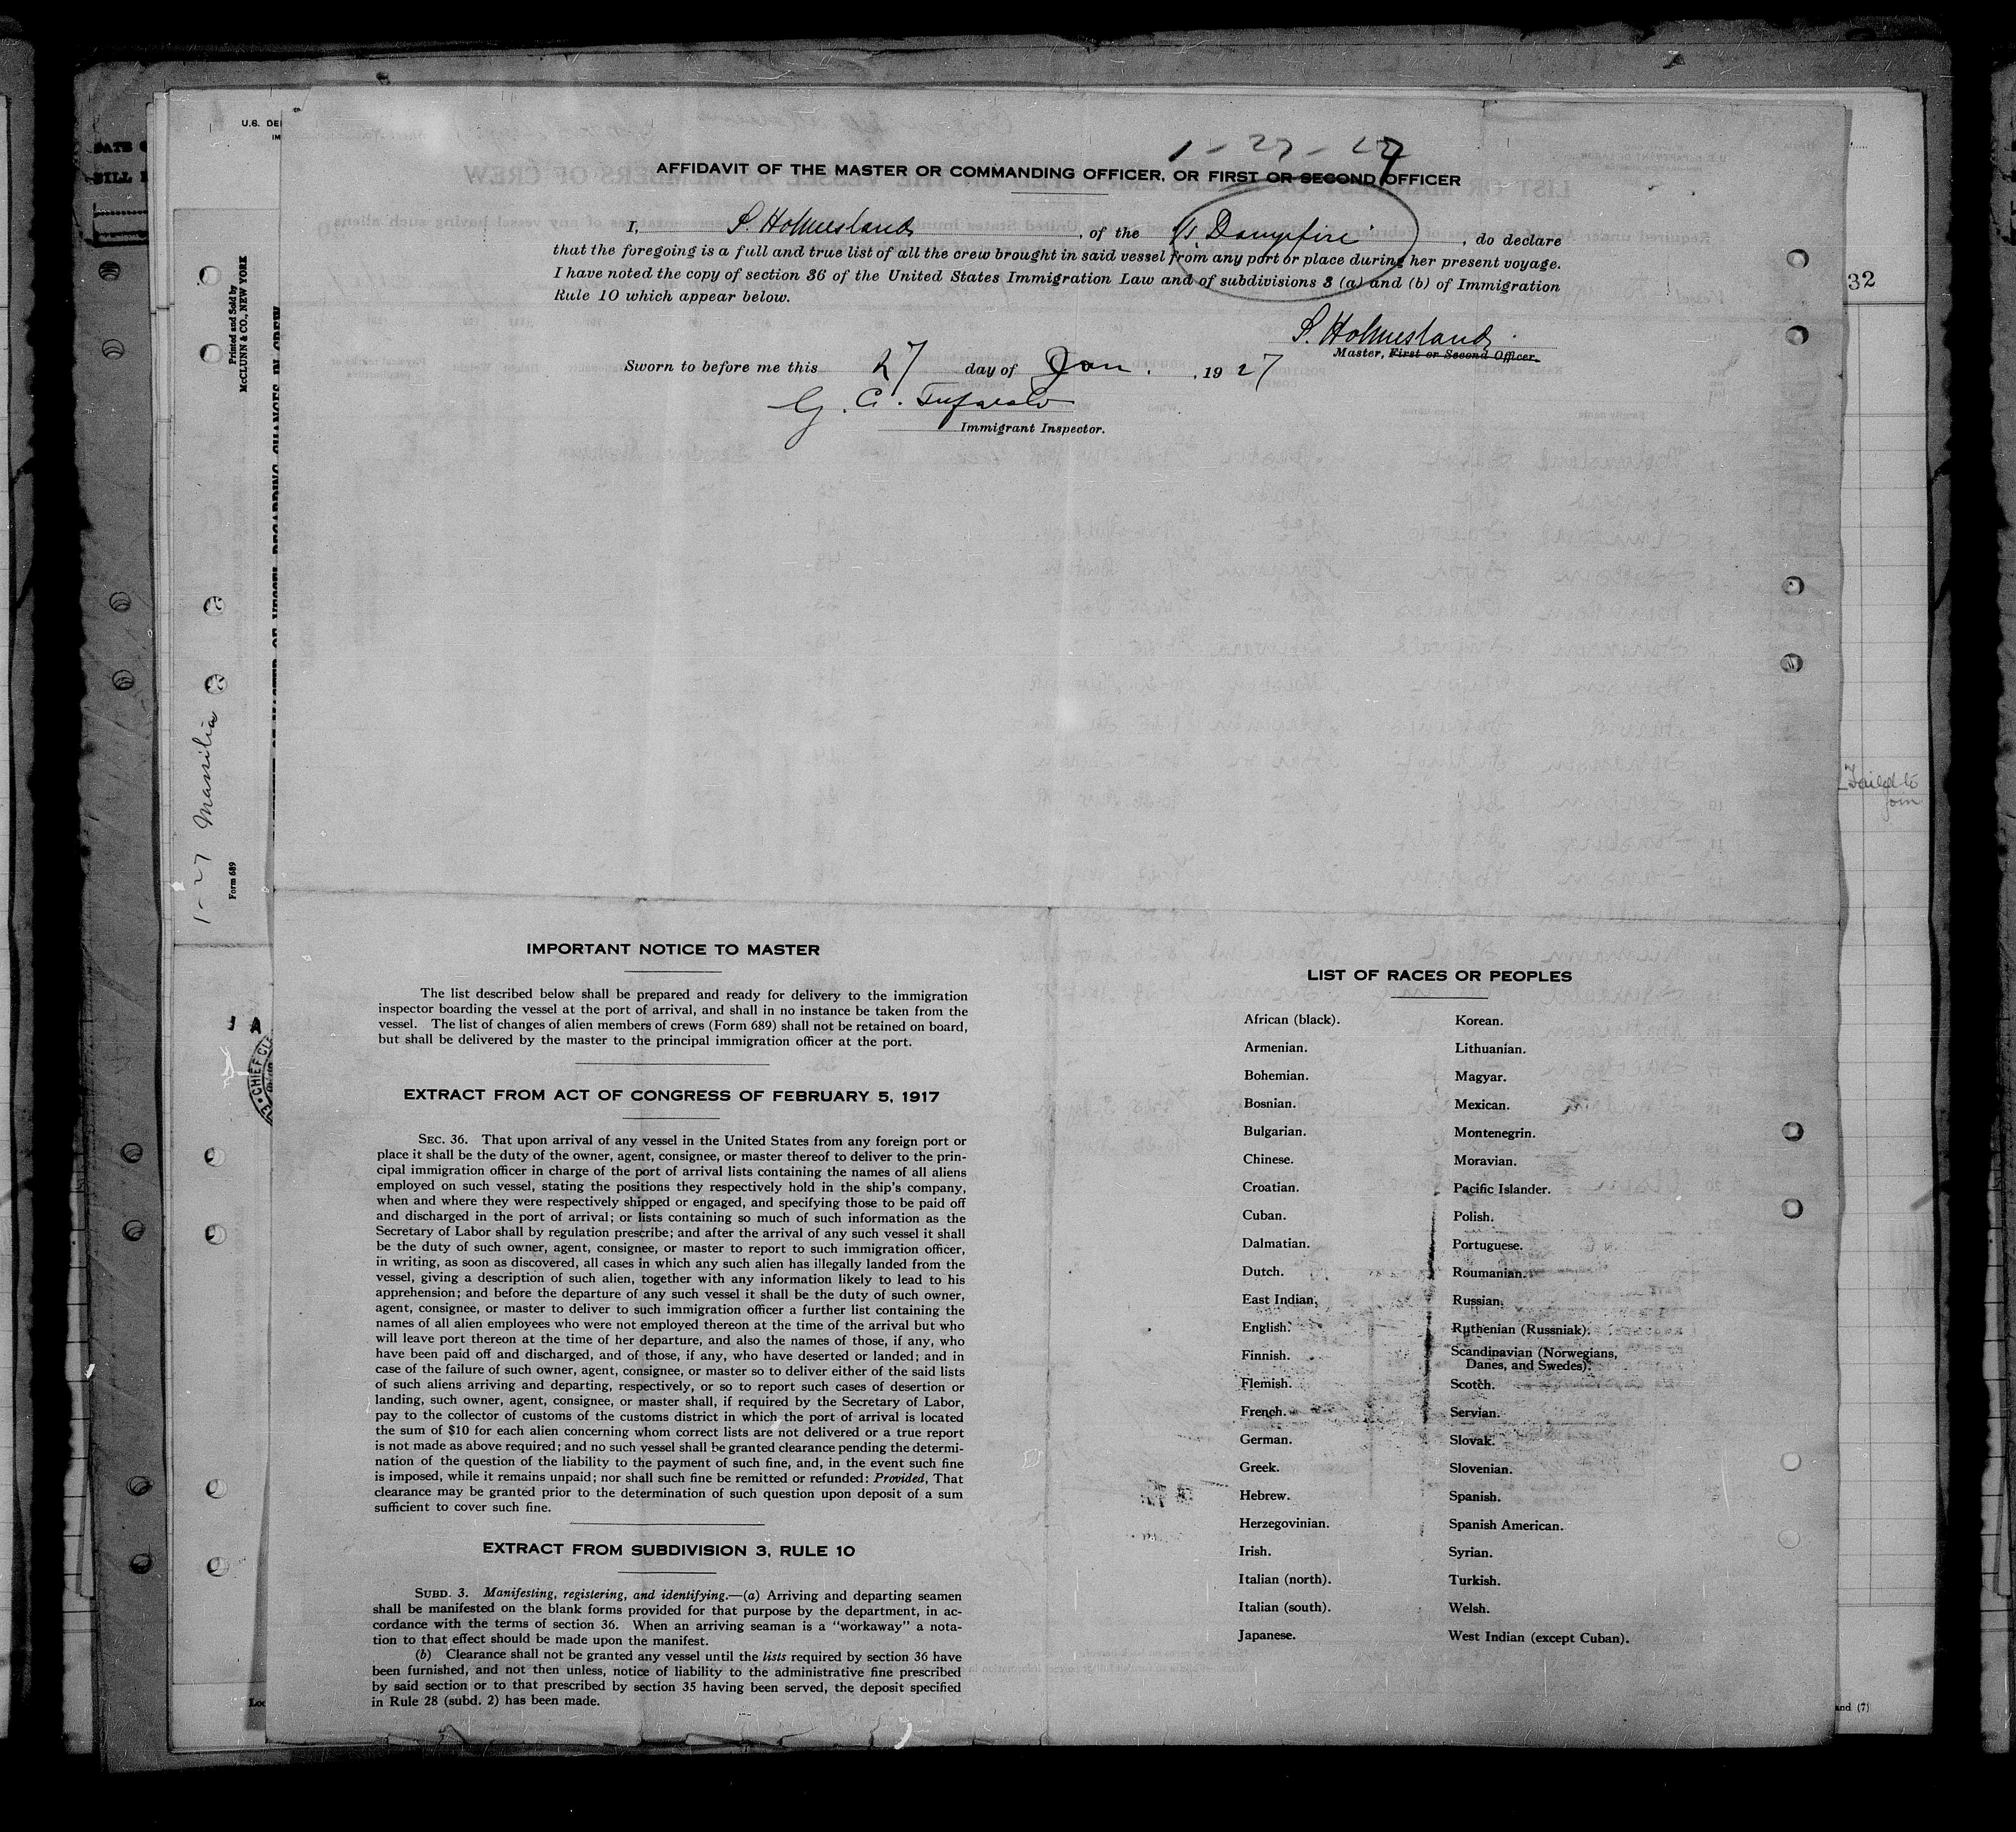 1-27-27
AFFIDAVIT OF THE MASTER OR COMMANDING OFFICER, OR FIRST OR SECOND OFFICER
I, S. Holmesland, of the S/S Dampfire, do declare
that the foregoing is a full and true list of all the crew brought in said vessel from any port or place during her present voyage.
I have noted the copy of section 36 of the United States Immigration Law and of subdivisions 3 (a) and (b) of Immigration
Rule 10 which appear below.
S. Holmesland
Master, First or Second Officer.
Sworn to before me this 27 day of Jan. , 19 27
G. A.
Immigrant Inspector.
IMPORTANT NOTICE TO MASTER
The list described below shall be prepared and ready for delivery to the immigration
inspector boarding the vessel at the port of arrival, and shall in no instance be taken from the
vessel. The list of changes of alien members of crews (Form 689) shall not be retained on board,
but shall be delivered by the master to the principal immigration officer at the port.
EXTRACT FROM ACT OF CONGRESS OF FEBRUARY 5, 1917
SEC. 36. That upon arrival of any vessel in the United States from any foreign port or
place it shall be the duty of the owner, agent, consignee, or master thereof to deliver to the prin-
cipal immigration officer in charge of the port of arrival lists containing the names of all aliens
employed on such vessel, stating the positions they respectively hold in the ship's company,
when and where they were respectively shipped or engaged, and specifying those to be paid off
and discharged in the port of arrival; or lists containing so much of such information as the
Secretary of Labor shall by regulation prescribe; and after the arrival of any such vessel it shall
be the duty of such owner, agent, consignee, or master to report to such immigration officer,
in writing, as soon as discovered, all cases in which any such alien has illegally landed from the
vessel, giving a description of such alien, together with any information likely to lead to his
apprehension; and before the departure of any such vessel it shall be the duty of such owner,
agent, consignee, or master to deliver to such immigration officer a further list containing the
names of all alien employees who were not employed thereon at the time of the arrival but who
will leave port thereon at the time of her departure, and also the names of those, if any, who
have been paid off and discharged, and of those, if any, who have deserted or landed; and in
case of the failure of such owner, agent, consignee, or master so to deliver either of the said lists
of such aliens arriving and departing, respectively, or so to report such cases of desertion or
landing, such owner, agent, consignee, or master shall, if required by the Secretary of Labor,
pay to the collector of customs of the customs district in which the port of arrival is located
the sum of $10 for each alien concerning whom correct lists are not delivered or a true report
is not made as above required; and no such vessel shall be granted clearance pending the determi-
nation of the question of the liability to the payment of such fine, and, in the event such fine
is imposed, while it remains unpaid; nor shall such fine be remitted or refunded: Provided, That
clearance may be granted prior to the determination of such question upon deposit of a sum
sufficient to cover such fine.
EXTRACT FROM SUBDIVISION 3, RULE 10
SUBD. 3. Manifesting, registering, and identifying.—(a) Arriving and departing seamen
shall be manifested on the blank forms provided for that purpose by the department, in ac-
cordance with the terms of section 36. When an arriving seaman is a "workaway" a nota-
tion to that effect should be made upon the manifest.
(b) Clearance shall not be granted any vessel until the lists required by section 36 have
been furnished, and not then unless, notice of liability to the administrative fine prescribed
by said section or to that prescribed by section 35 having been served, the deposit specified
in Rule 28 (subd. 2) has been made.
LIST OF RACES OR PEOPLES
African (black).
Armenian.
Bohemian.
Bosnian.
Bulgarian.
Chinese.
Croatian.
Cuban.
Dalmatian.
Dutch.
East Indian.
English.
Finnish.
Flemish.
French.
German.
Greek.
Hebrew.
Herzegovinian.
Irish.
Italian (north).
Italian (south).
Japanese.
Korean.
Lithuanian.
Magyar.
Mexican.
Montenegrin.
Moravian.
Pacific Islander.
Polish.
Portuguese.
Roumanian.
Russian.
Ruthenian (Russniak).
Scandinavian (Norwegians,
Danes, and Swedes).
Scotch.
Servian.
Slovak.
Slovenian.
Spanish.
Spanish American.
Syrian.
Turkish.
Welsh.
West Indian (except Cuban).
Printed and Sold by
McCLUNN & CO., NEW YORK
1-27 Massilia
Form 689
U.S. DE
IM
CHIEF CL
32
Failed to
join
and (7)